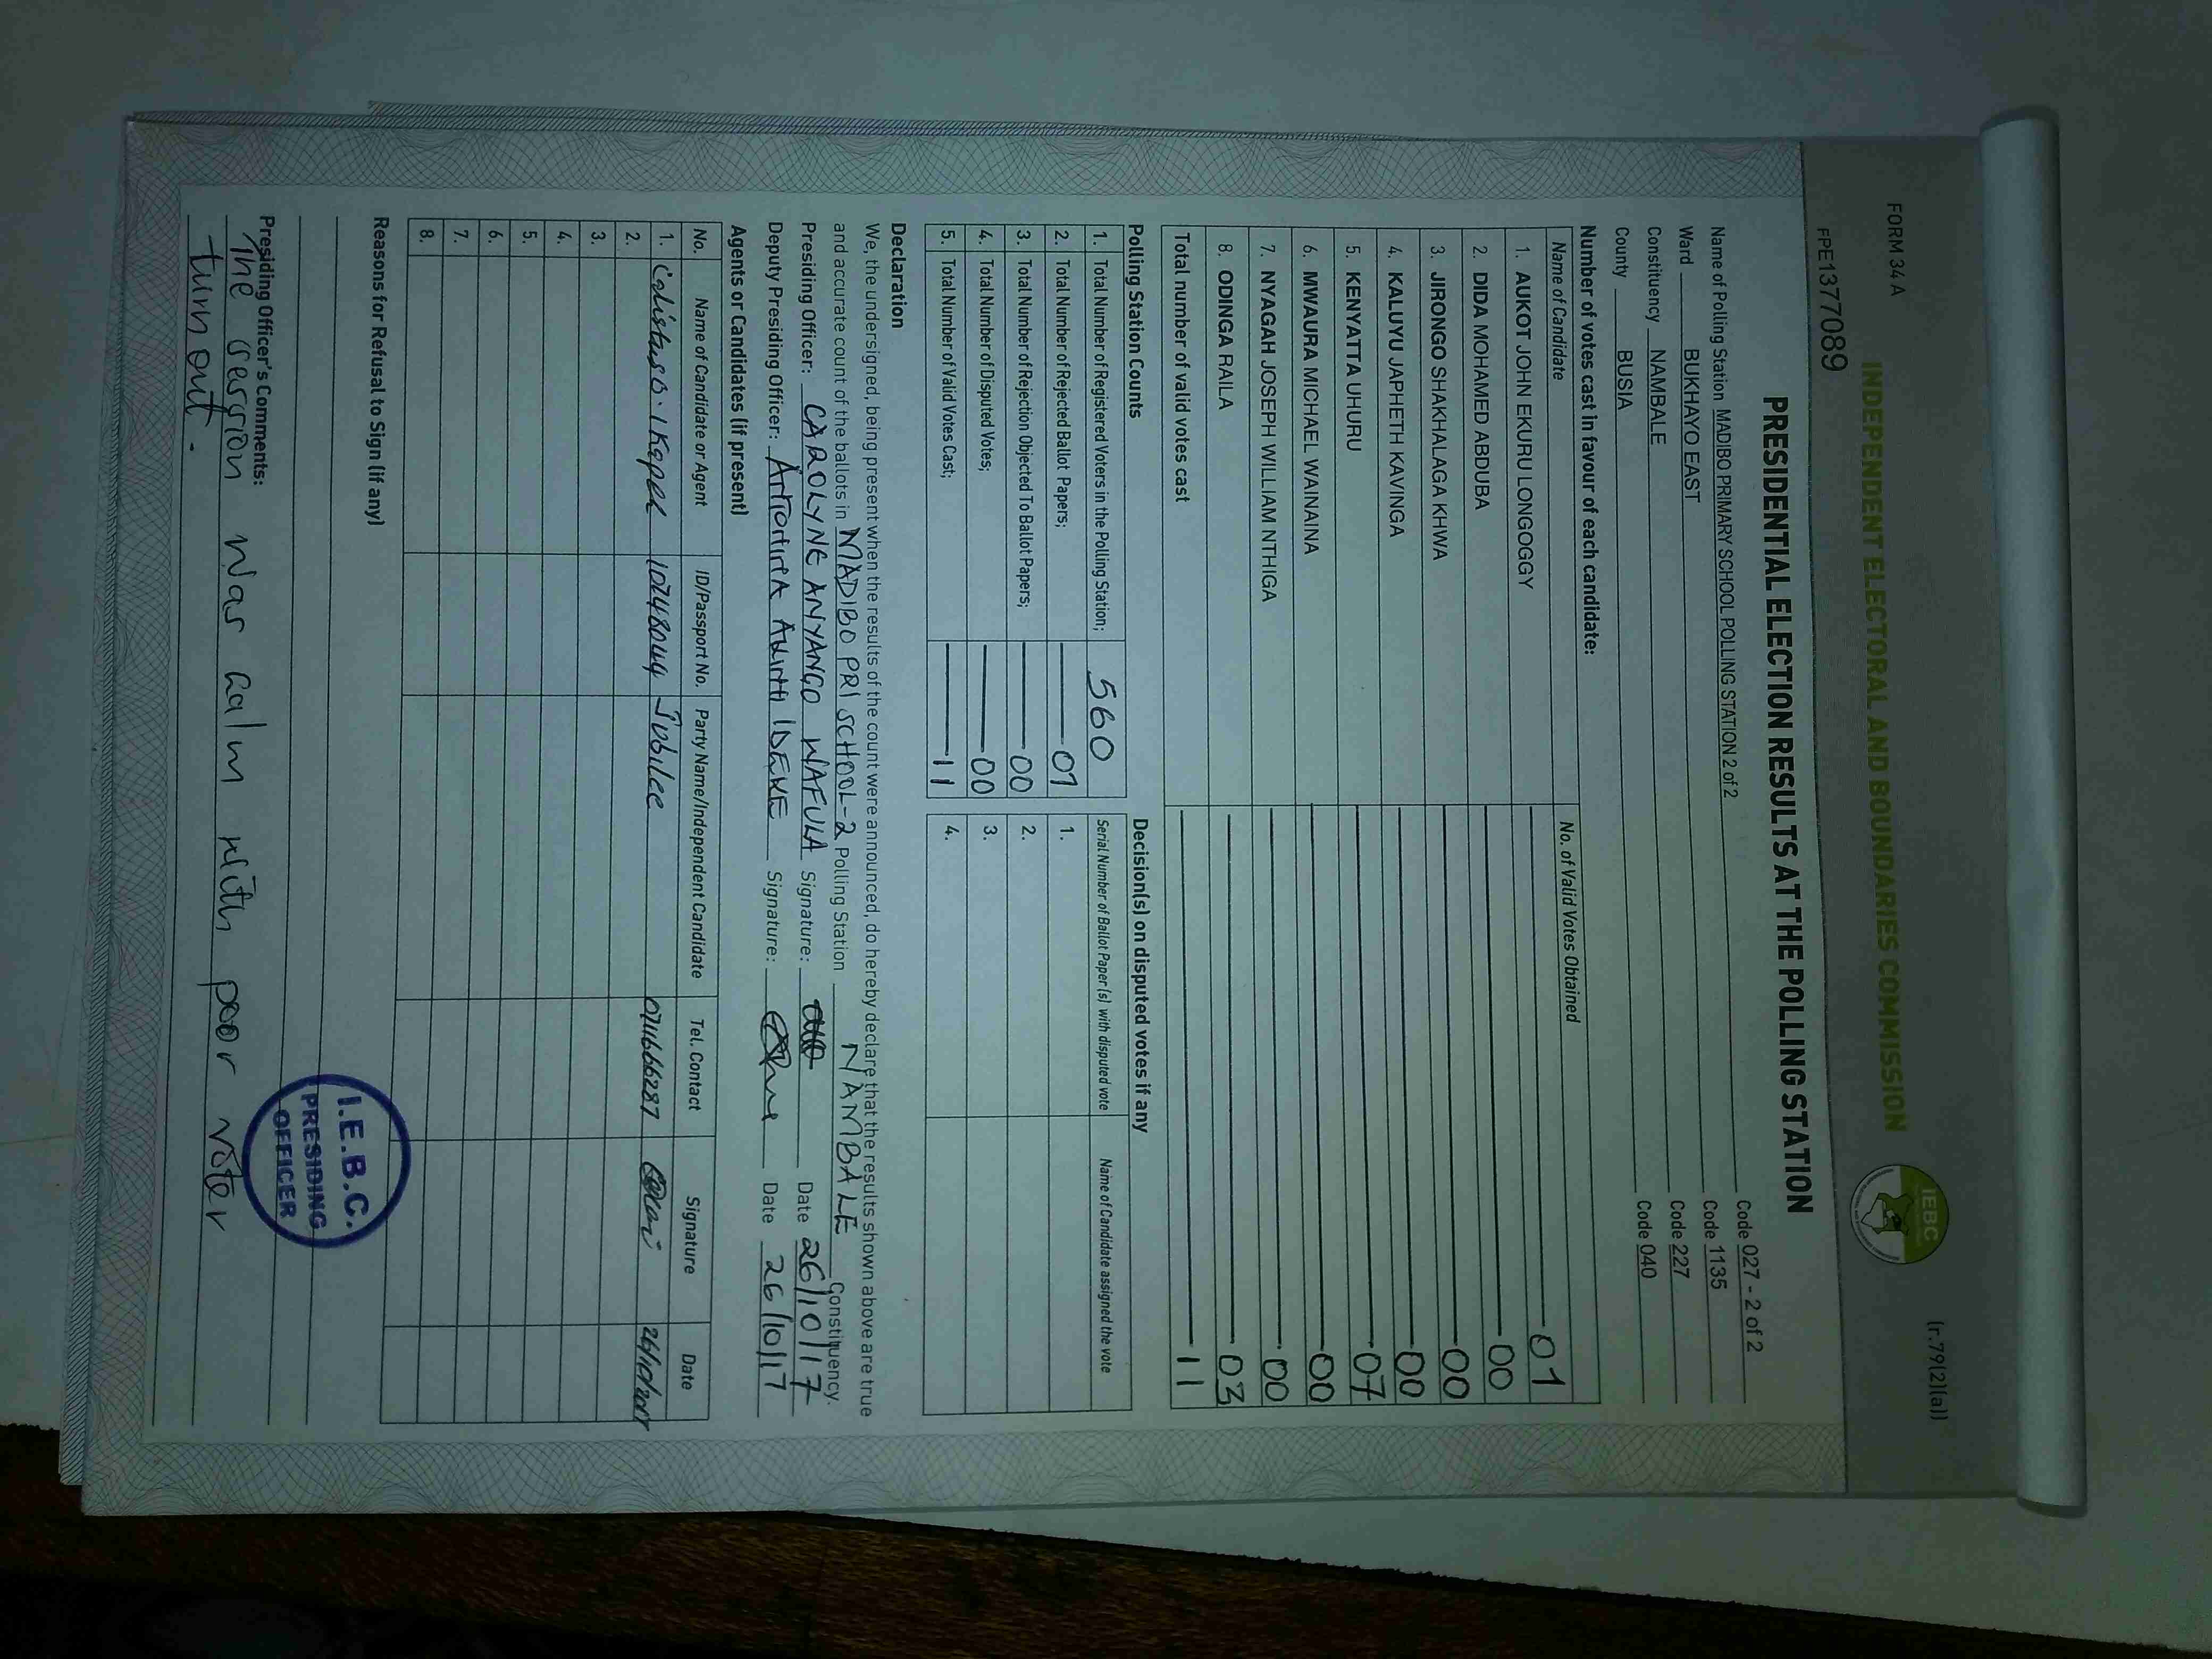 FORM 34 A
(r.79(2)(a))
INDEPENDENT ELECTORAL AND BOUNDARIES COMMISSION
IEBC
FPE137089
PRESIDENTIAL ELECTION RESULTS AT THE POLLING STATION
Name of Polling Station MADIBO PRIMARY SCHOOL POLLING STATION 2 of 2 Code 027 - 2 of 2
Ward BUKHAYO EAST Code 1135
Constituency NAMBALE Code 227
County BUSIA Code 040
Number of votes cast in favour of each candidate:
Name of Candidate No. of Valid Votes Obtained
1. AUKOT JOHN EKURU LONGOGGY 01
2. DIDA MOHAMED ABDUBA 00
3. JIRONGO SHAKHALAGA KHWA 00
4. KALUYU JAPHETH KAVINGA 00
5. KENYATTA UHURU 07
6. MWAURA MICHAEL WAINAINA 00
7. NYAGAH JOSEPH WILLIAM NTHIGA 00
8. ODINGA RAILA 03
Total number of valid votes cast 11
Polling Station Counts Decision(s) on disputed votes if any
1. Total Number of Registered Voters in the Polling Station; 560 Serial Number of Ballot Paper(s) with disputed vote Name of Candidate assigned the vote
2. Total Number of Rejected Ballot Papers; 01 1.
3. Total Number of Rejection Objected To Ballot Papers; 00 2.
4. Total Number of Disputed Votes; 00 3.
5. Total Number of Valid Votes Cast; 11 4.
Declaration
We, the undersigned, being present when the results of the count were announced, do hereby declare that the results shown above are true
and accurate count of the ballots in MADIBO PRI SCHOOL-2 Polling Station NAMBALE Constituency.
Presiding Officer: CAROLYNE ANYANGO WAFULA Signature: Date 26/10/17
Deputy Presiding Officer: Signature: Date 26/10/17
Agents or Candidates (if present)
No. Name of Candidate or Agent ID/Passport No. Party Name/Independent Candidate Tel. Contact Signature Date
1. Jubilee 0716666287
2.
3.
4.
5.
6.
7.
8.
Reasons for Refusal to Sign (if any)
I.E.B.C.
PRESIDING
OFFICER
Presiding Officer's Comments:
The session was calm with poor voter
turn out.